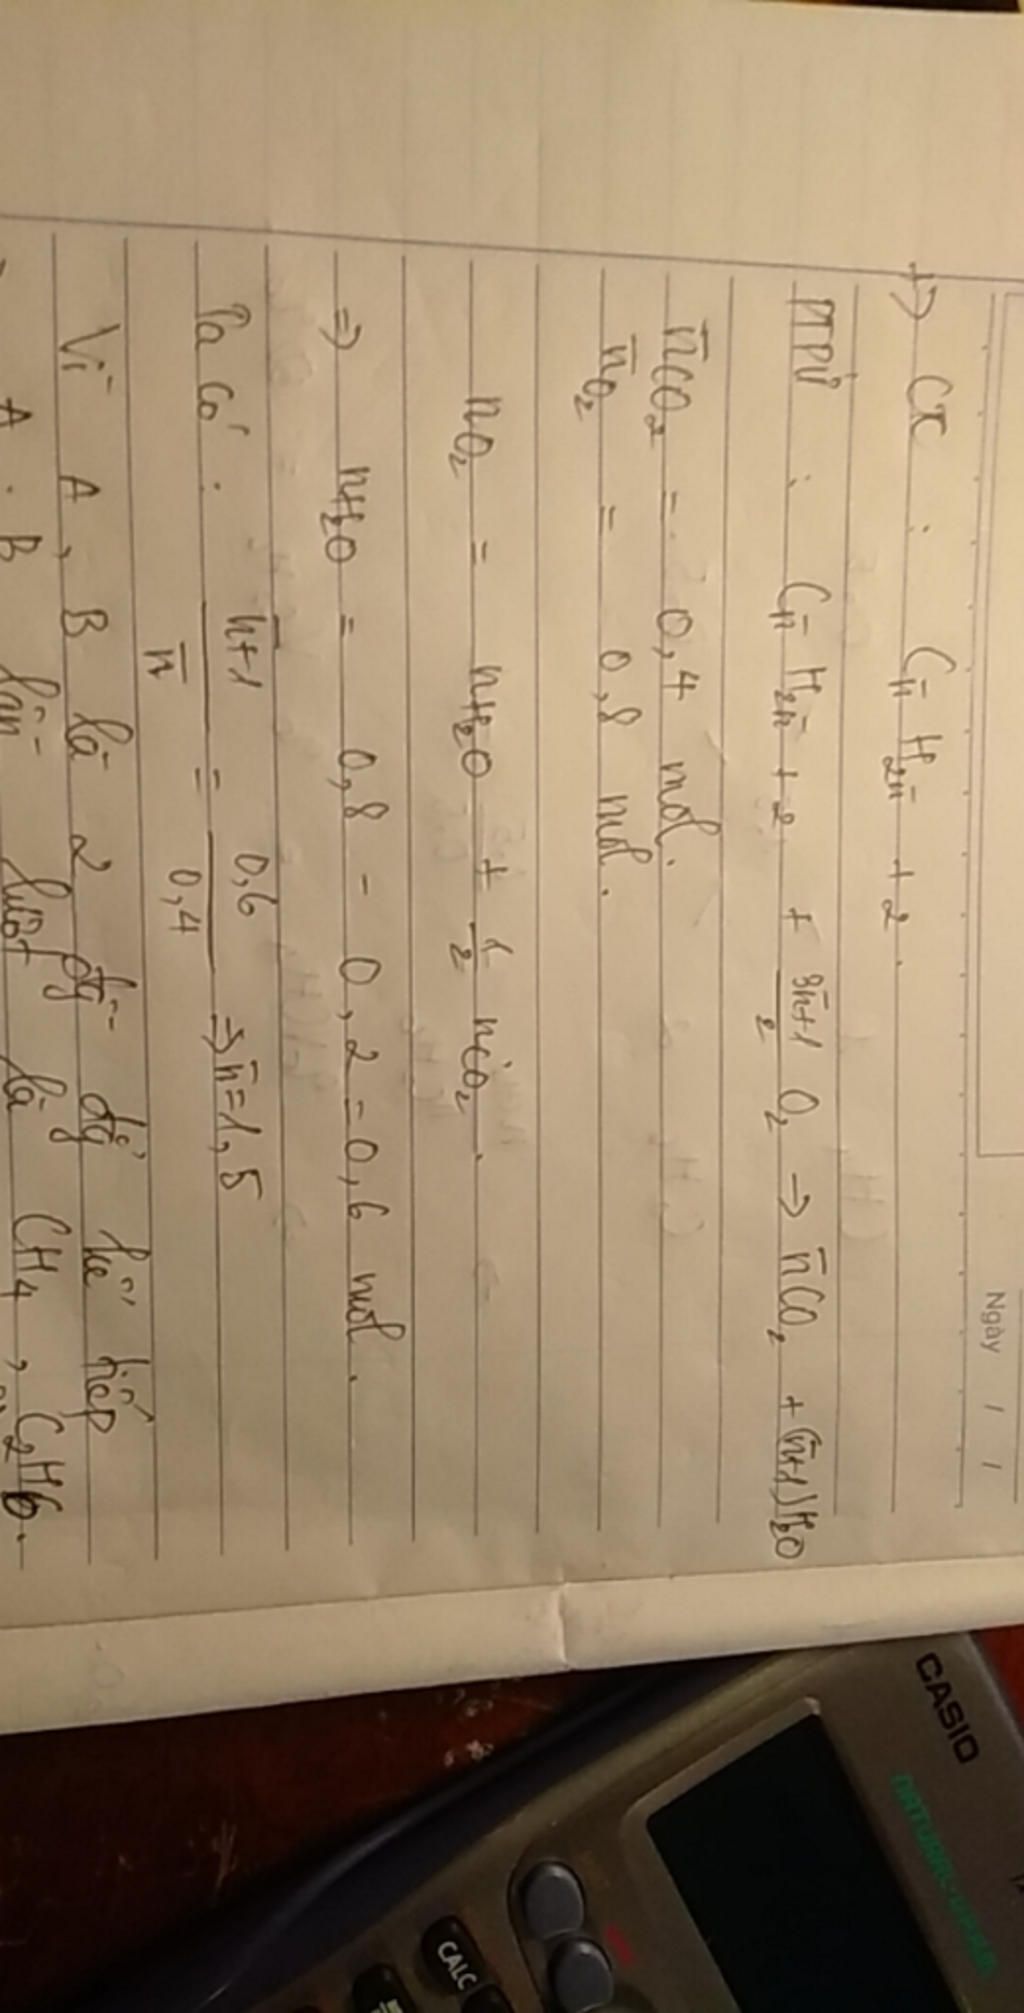 Ngày / /
+> CT : Cn̄ H2n̄ + 2 .
PTPƯ : Cn̄ H2n̄ + 2 + 3n̄+1/2 O2 → n̄CO2 + (n̄+1)H2O
n̄CO2 = 0,4 mol.
n̄O2 = 0,8 mol.
nO2 = nH2O + 1/2 nCO2 .
=> nH2O = 0,8 - 0,2 = 0,6 mol .
Ta có : n̄+1/n̄ = 0,6/0,4 => n̄=1,5
Vì A, B là 2 đồng đẳng kế tiếp
A . B lần lượt là CH4 , C2H6.
CASIO
NATURAL-V.P.A.M.
CALC